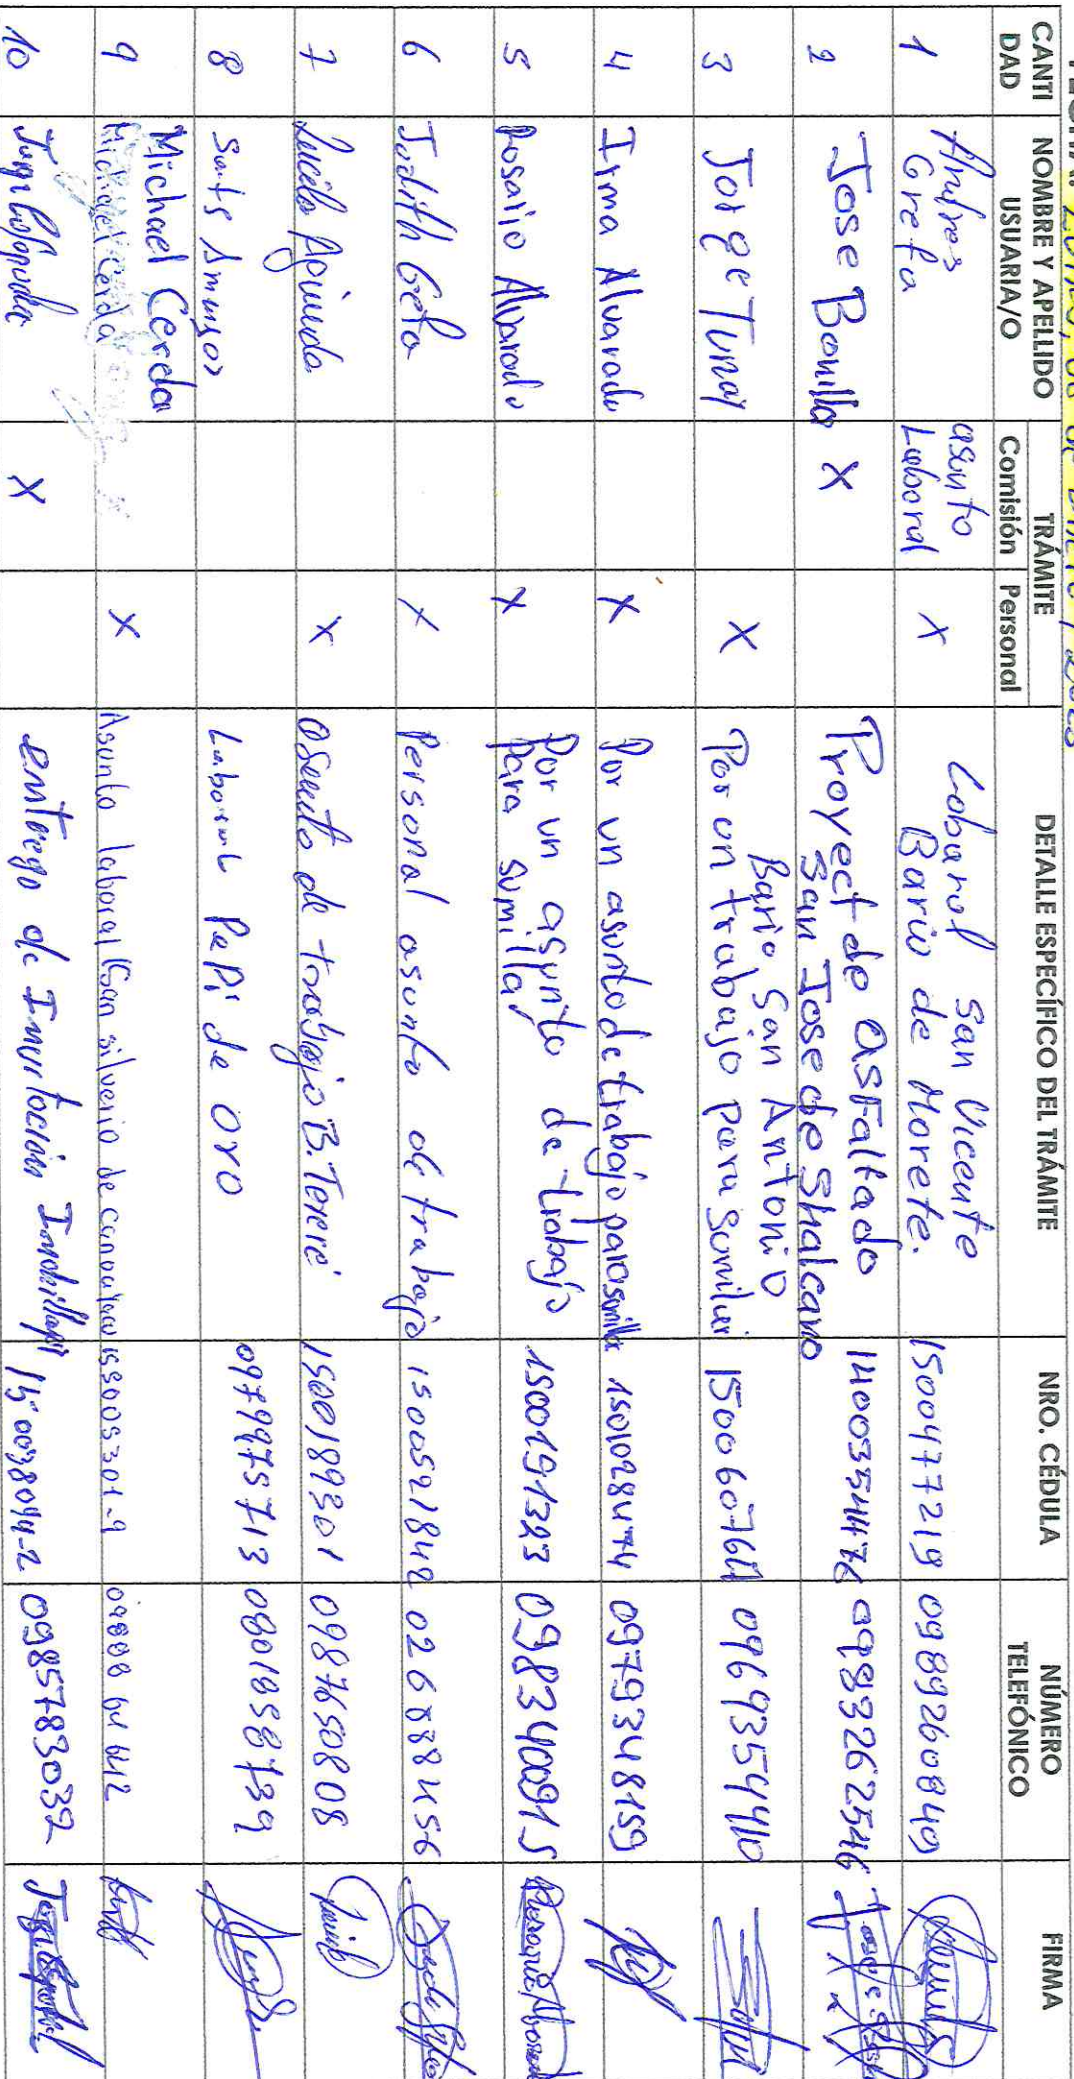 FECHA: LUNES, 08 DE ENERO / 2023
CANTI DAD NOMBRE Y APELLIDO USUARIA/O TRÁMITE Comisión Personal DETALLE ESPECÍFICO DEL TRÁMITE NRO. CÉDULA NÚMERO TELEFÓNICO FIRMA
1 Andres Grefa asunto Laboral X Laboral San Vicente Bario de Morete. 1500477219 0989260849
2 Jose Bonilla X Proyect de asfaltado San Jose de Shalcano 1400354476 0983262546
3 Jorge Tunay X Bario San Antonio Por un trabajo para sumillar 0969354410
4 Irma Alvarado X Por un asunto de trabajo para sumilla 1501028474 0979348159
5 Rosario Alvarado X Por un asunto de trabajo para sumillar 1500191323 0983400915
6 Judith Grefa X Personal asunto de trabajo 1500521842 026888456
7 Lucila Aguinda X asunto de trabajo B. Tereré 1500189301 0987650808
8 Laboral PaPi de oro 0979975713 0801858739
9 Michael Cerda Michael Cerda X Asunto laboral San silverio de 15005301-9 098886442
10 X entrega de Invitación 150038044-2 0985783032